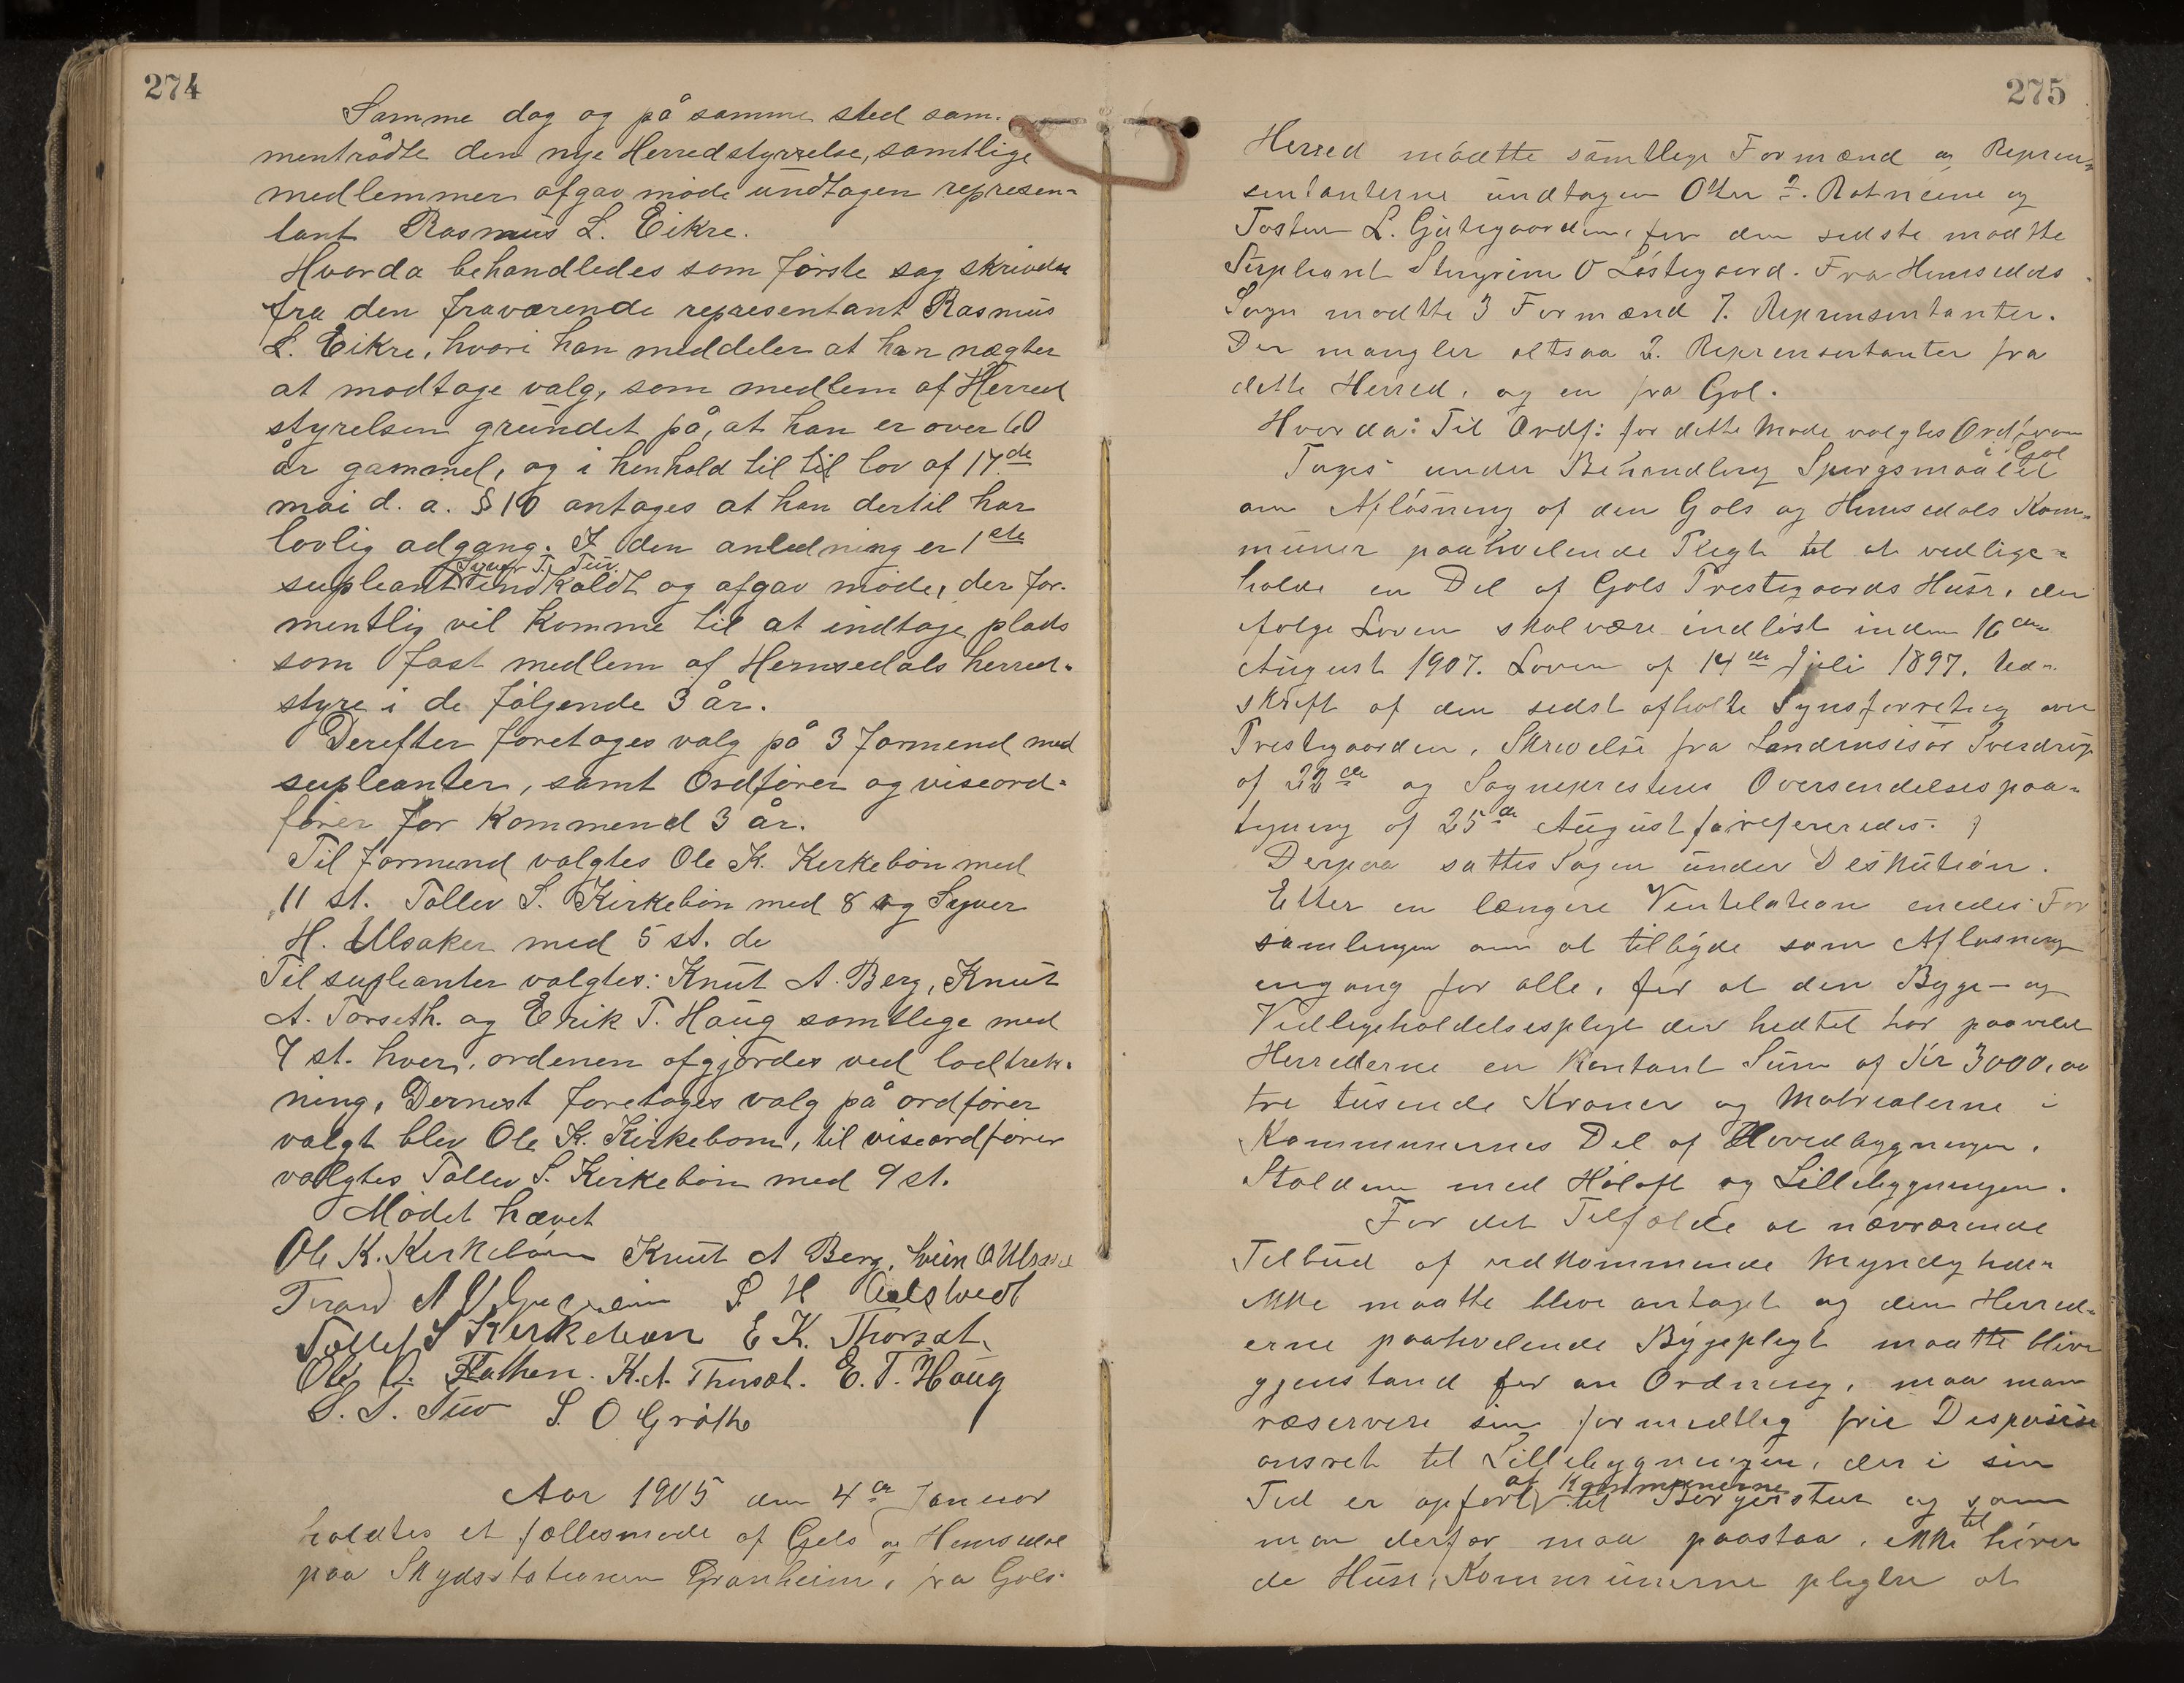 274
Samme dag og på samme sted sam-
mentrådte den nye Herredstyrrelse, samtlige
medlemmer afgav møde undtagen represen-
tant Rasmus L. Eikre.
Hvorda behandledes som første sag skrivelse
fra den fraværende representant Rasmus
L. Eikre, hvori han meddeler at han nægter
at modtage valg, som medlem af Herred
styrelsen grundet på, at han er over 60
år gammel, og i henhold til til lov af 17de
mai d. a. § 10 antages at han dertil har
lovlig adgang. I den anledning er 1ste
supleant Syver T. Tuv indkaldt og afgav møde, der for-
mentlig vil komme til at indtage plads
som fast medlem af Hemsedals herred-
styre i de følgende 3 år.
Derefter foretages valg på 3 formend med
supleanter, samt Ordfører og viseord-
fører for Kommend 3 år.
Til formend valgtes Ole K. Kirkebøn med
11 st. Tollev S. Kirkebøn med 8 og Syver
H. Ulsaker med 5 st. de
Til supleanter valgtes: Knut A. Berg, Knut
A. Torseth. og Erik T. Haug samtlige med
7 st. hver, ordenen afgjordes ved lodtrek-
ning, Dernest foretages valg på ordfører
valgt blev Ole K. Kirkebøn, til viseordfører
valgtes Tollev S. Kirkebøn med 9 st.
Mødet hævet
Ole K. Kirkebøen Knut A Berg, Svein O Ulsaker
S H
Tollef S Kirkebøen E K. Thorset.
Ole O. Flathen. K. A. Thorset. E. T. Haug
S. T. Tuv S. O Grøthe
Aar 1905 den 4de Januar
holdtes et fællesmøde af Gols og Hemsedal
paa Skydsstationen Granheim, fra Gols
275
Herred mødtte samtlige Formænd og Repren-
sentanterne undtagen Otter Rotneim og
Tosten L. Gjutegaarden, for den sidste mødtte
Supleant Stengrim O Løstegaard. Fra Hemsedals
Sogn mødtte 3 Formænd 7. Reprensentanter.
Der mangler altsaa 2. Reprensentanter fra
dette Herred, og en fra Gol.
Hvorda: Til Ordf: for dette Møde valgtes Ordf. fra
Gol
Toges under Behandling Spørgsmaalet
om Afløsning af den Gols og Hemsedals Kom-
muner paahvelende Pligt til at vedlige-
holde en Del af Gols Prestegaards Huse, der
ifølge Loven skal være indløst inden 16de
August 1907. Loven af 14de Juli 1897. Ud-
skrift af den sidst afholte Synsforretning over
Prestegaarden, Skrivelse fra Landinsisør Sverdrup
af 22de og Sogneprestens Oversendelsespaa-
tegning af 25de August foreferertedes.
Derpaa sattes Sagen under Diskution.
Etter en længere Ventelation enedes For
samlingen om at tilbyde som Afløsning
engang for alle, for at den Bygge- og
Vedligeholdelsespligt der hedtil har paavilet
Herrederne en Kontant Sum af Kr 3000,00
tre tusende Kroner og Matrealerne i
Kommunernes Del af Hovedbygningen,
Stalden med Høloft og Lillebygningen.
For det Telfælde at nærværende
Telbud af vedkommende Myndigheder
ikke maatte bleve antaget og den Herred-
erne paahvelende Bygepligt maatte blive
gjenstand for an Ordning, maa man
ræservere sin formedtlig frie Disposisi
onsret til Lillebygningen, der i sin
Tid er opført af Kommunerne til Borgerstue og som
man derfor maa paastaa, ikke hører til
de Huse, Kommunerne pligter at